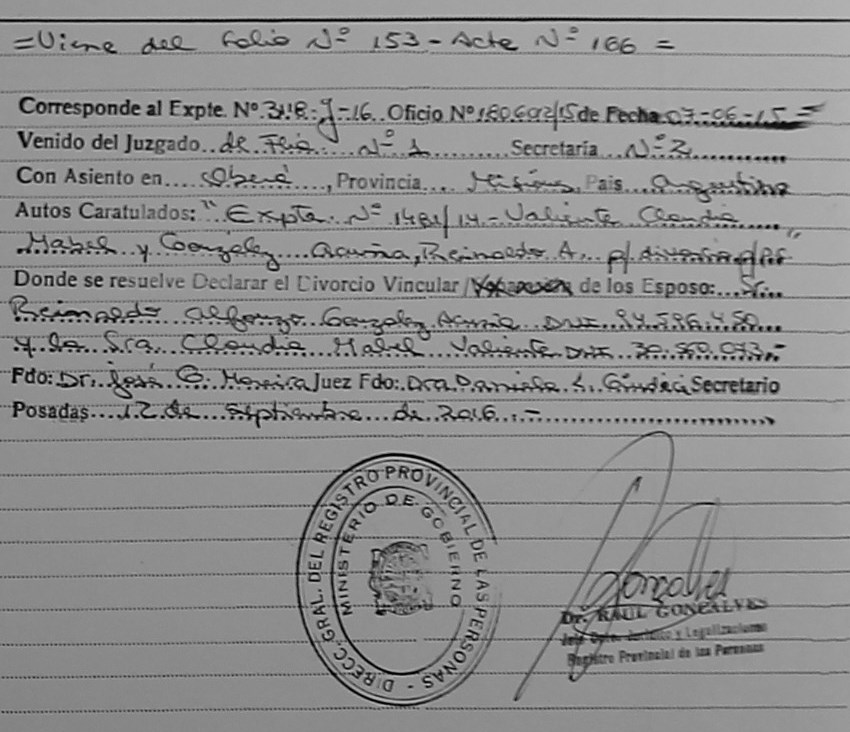 =Viene del Folio Nº 153 - Acta Nº 166 =
Corresponde al Expte. Nº 3118-J-16 Oficio Nº 180602/15 de Fecha 07-06-15=
Venido del Juzgado de Flia Nº 1 Secretaría Nº 2
Con Asiento en Oberá, Provincia Misiones, País Argentina
Autos Caratulados: "Expte. Nº 1481/14 - Valiente Claudia
Mabel y Gonzalez Acuña, Reinaldo A. p/ divorcio"
Donde se resuelve Declarar el Divorcio Vincular / de los Esposo: Sr.
Reinaldo Alfonzo Gonzalez Acuña DNI 94.596.450
y la Sra. Claudia Mabel Valiente DNI 30.960.073.-
Fdo: Dr. José G. Moreira Juez Fdo: Dra Daniela Secretario
Posadas 12 de Septiembre de 2016.-
DIRECC. GRAL. DEL REGISTRO PROVINCIAL DE LAS PERSONAS -
MINISTERIO DE GOBIERNO
Goncalves
Dr. RAUL GONCALVES
Jefe Dpto. Jurídico y Legalizaciones
Registro Provincial de las Personas